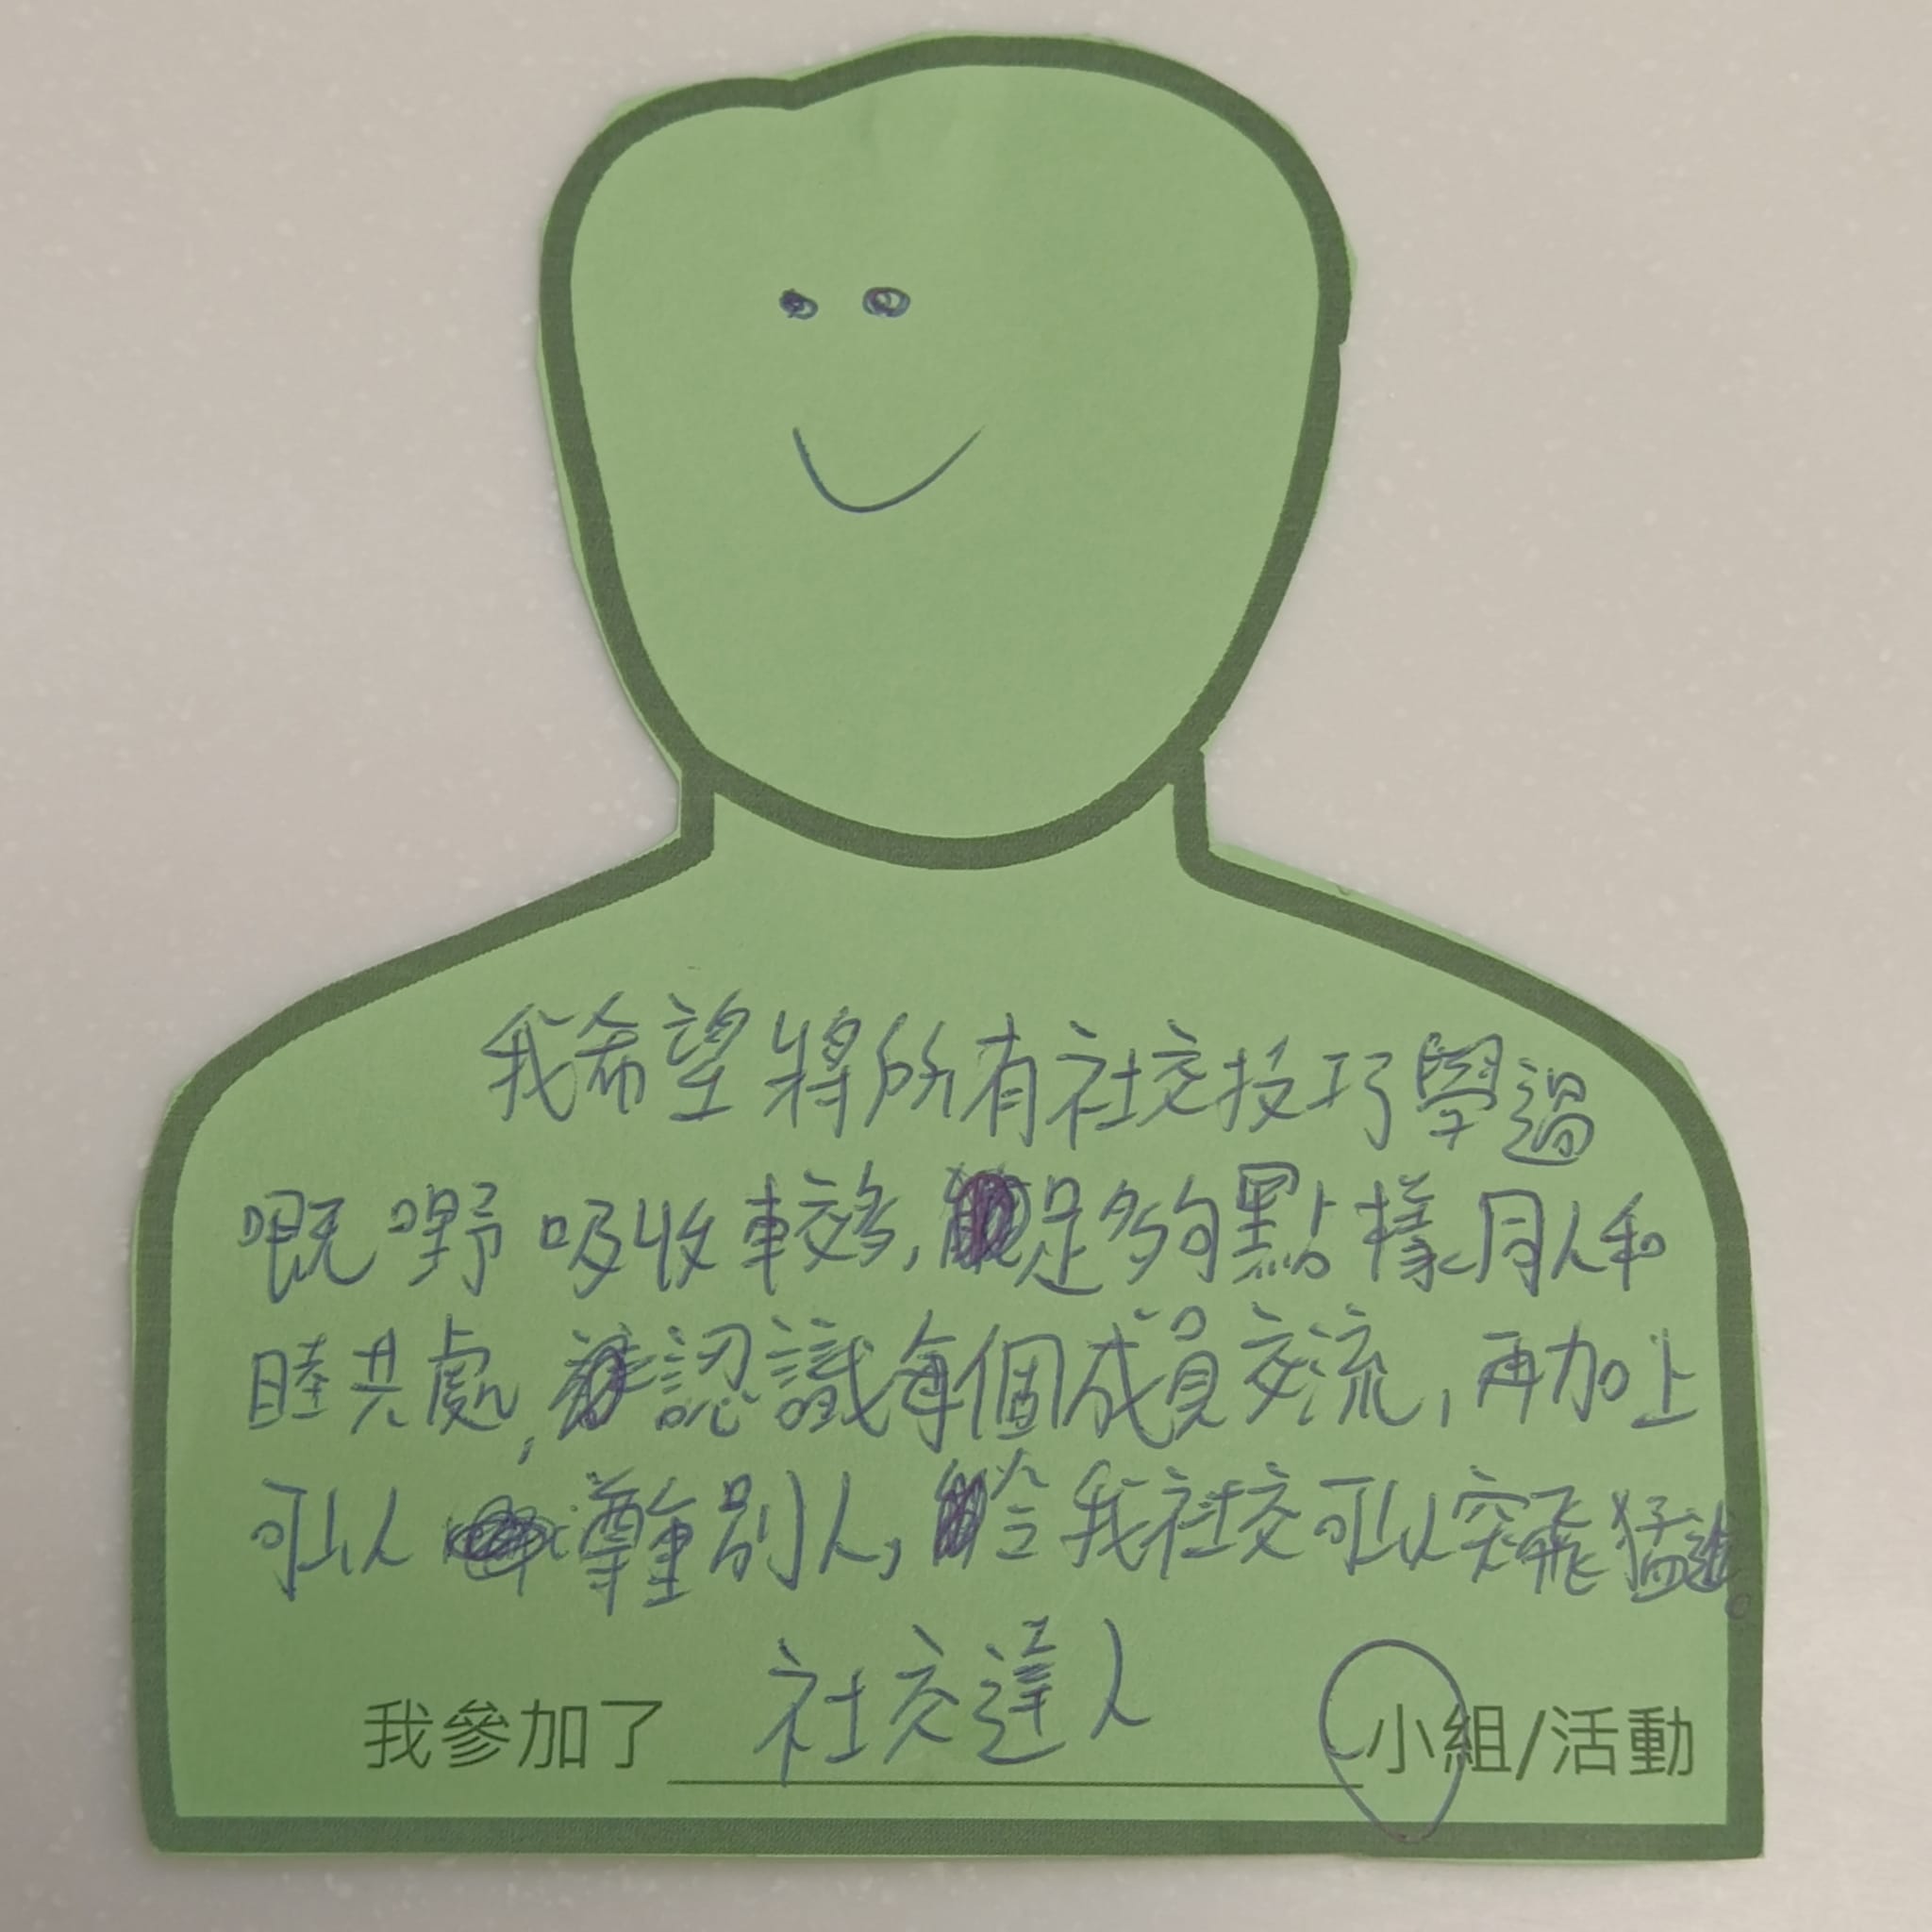 我希望將所有社交技巧學過
嘅嘢吸收較多,足夠點樣同人和
睦共處,認識每個成員交流,再加上
可以人尊重別人,令我社交可以突飛猛進。
我參加了 社交達人 小組/活動